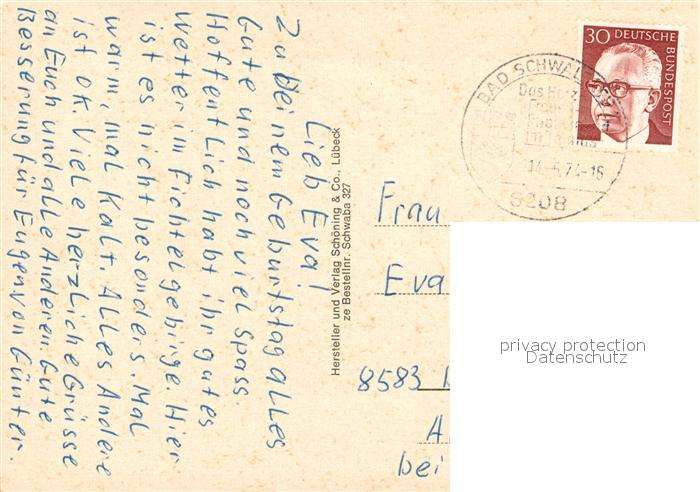 Lieb Eva!
Zu Deinem Geburtstag alles
Gute und noch viel Spass.
Hoffentlich habt ihr gutes
Wetter im Fichtelgebirge. Hier
ist es nicht besonders. Mal
warm, mal Kalt. Alles Andere
ist OK. Viele herzliche Grüsse
an Euch und alle Anderen. Gute
Besserung für Eugen von Günter.
Hersteller und Verlag Schöning & Co., Lübeck
ze Bestellnr. Schwaba 327
30 DEUTSCHE
BUNDESPOST
BAD SCHWAL
Das Herz
14-6.74-16
6208
Frau
Eva
8583
A
bei
privacy protection
Datenschutz